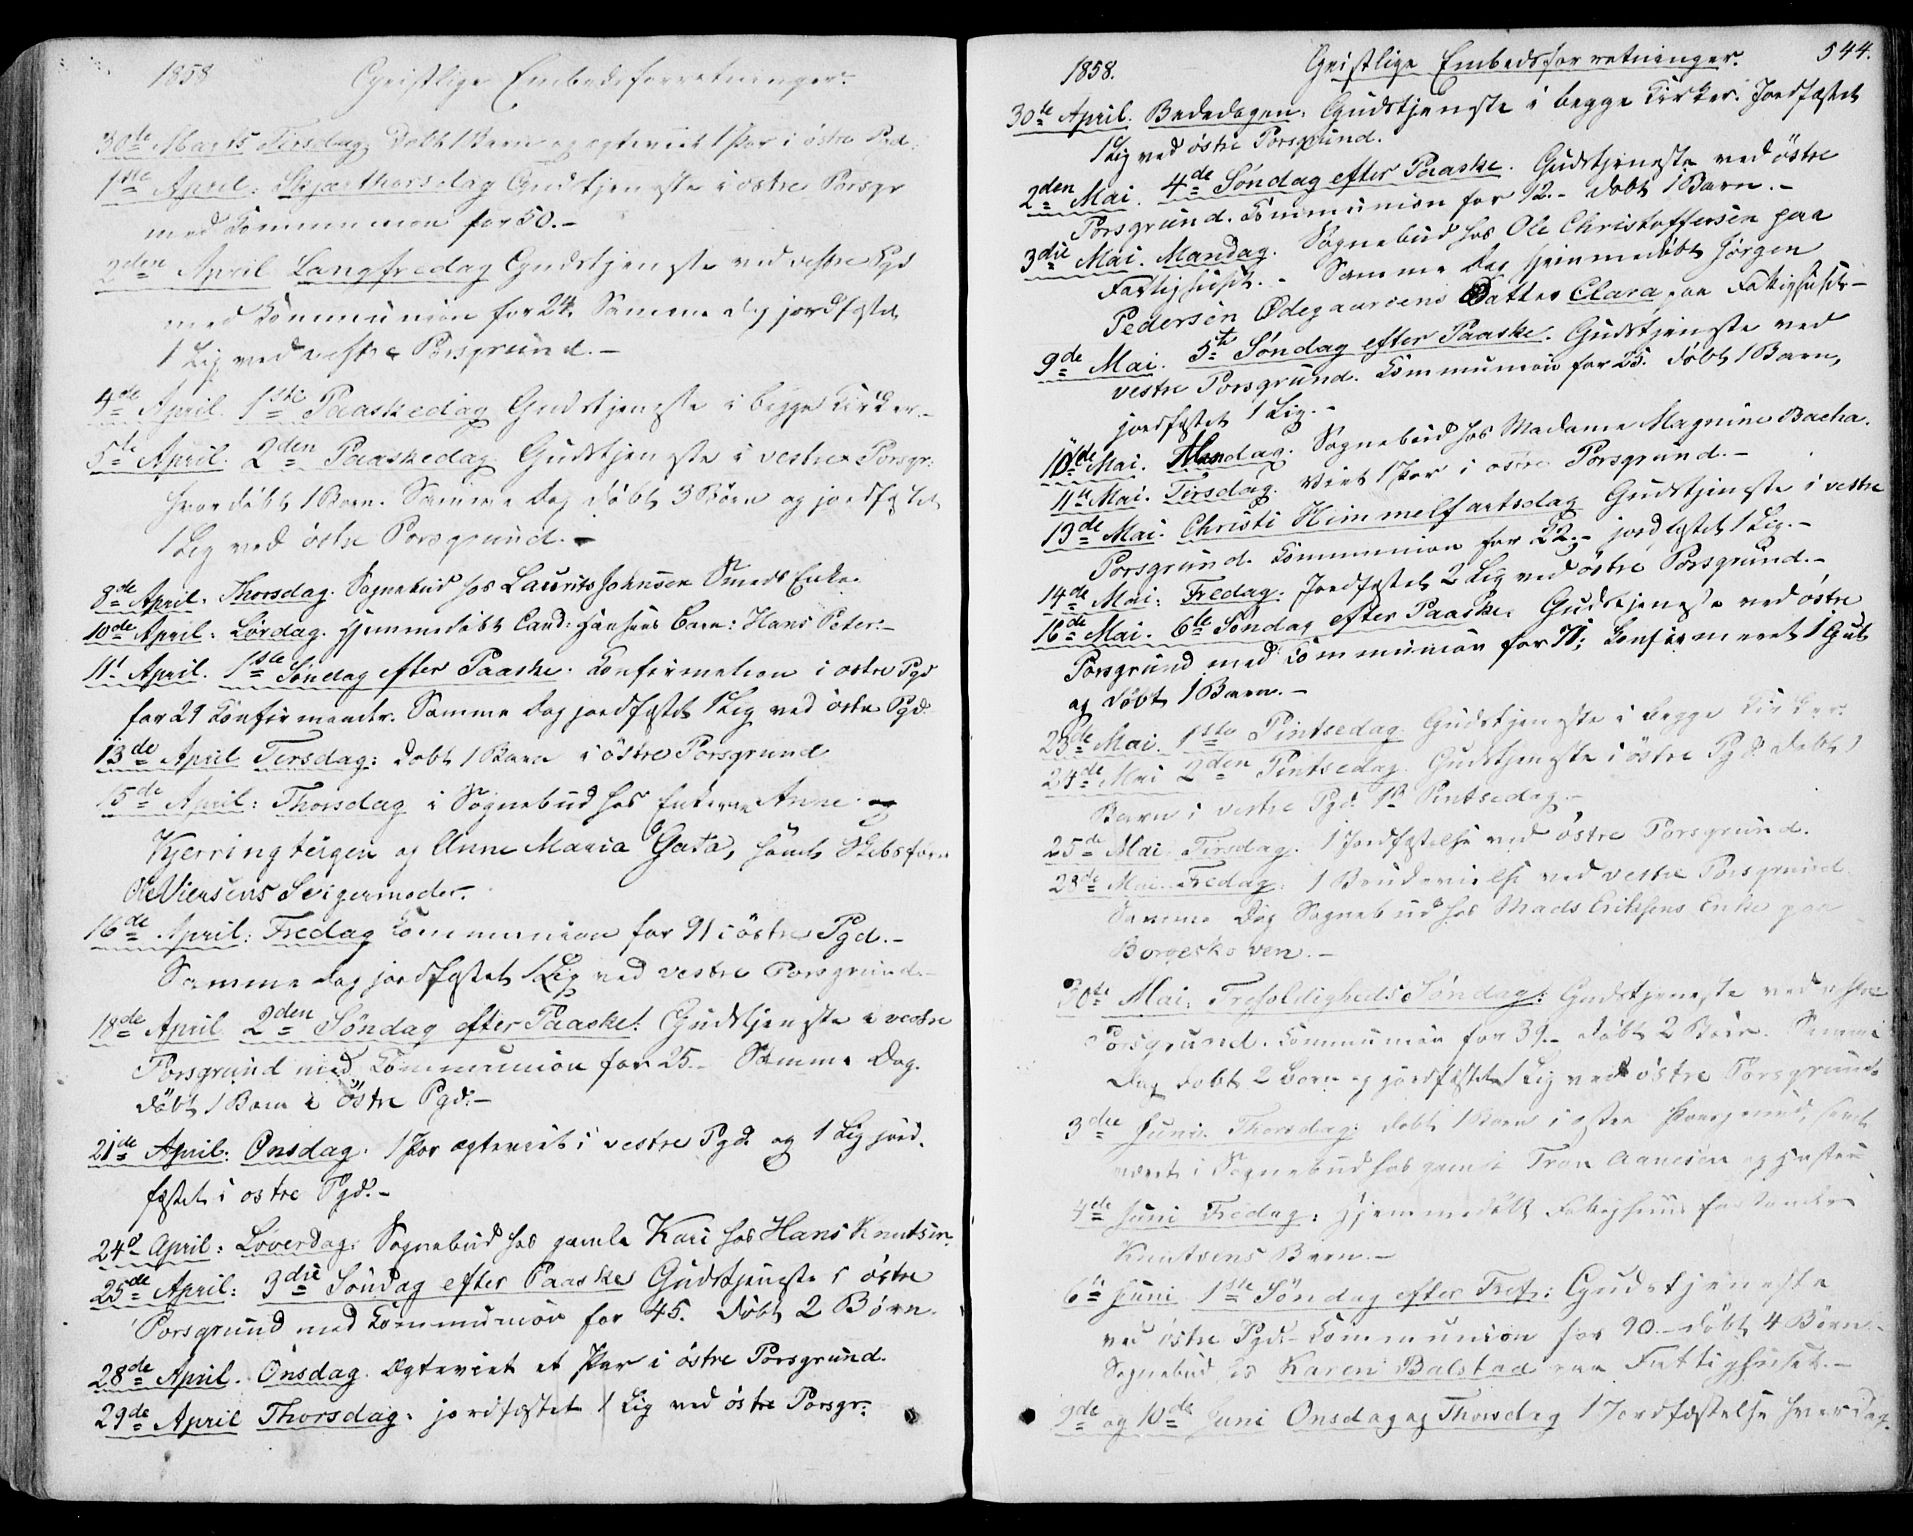 1858 Geistlige Embedsforretninger.
30te Marts Tirsdag. Døbt 1 Barn og egteviet 1 Par i østre Pgd.
1ste April: Skjærthorsdag Gudstjeneste i østre Porsgr
med Communion for 50.-
2den April Langfredag Gudstjeneste ved vestre Pgd
med Communion for 24. Samme dag jordfæstet
1 Lig ved vestre Porsgrund.-
4de April. 1ste Paaskedag Gudstjeneste i begge Kirker.-
5te April. 2den Paaskedag. Gudstjeneste i vestre Porsgr:
hvor døbt 1 Barn. Samme Dag døbt 3 Børn og jordfæstet
1 Lig ved østre Porsgrund.-
8de April. Thorsdag. Sognebud hos Laurits Johnsen Smeds Enke.
10de April: Lørdag. Hjemmedøbt Cand: Hansens Barn: Hans Peter.-
11te April. 1ste Søndag efter Paaske. Confirmation i østre Pgd
for 29 Confirmander. Samme Dag jordfæstet 1 Lig ved østre Pgd.
13de April Tirsdag: døbt 1 Barn i østre Porsgrund
15de April: Thorsdag i Sognebud hos Enkerne Anne
Kjerringteigen og Anne Maria Gata, samt Skibsfører
Svigermoder.
16de April: Fredag Communion for 91 i østre Pgd.-
Samme dag jordfæstet 1 Lig ved vestre Porsgrund.-
18de April 2den Søndag efter Paaske: Gudstjeneste i vestre
Porsgrund med Communion for 25.- Samme Dag.
døbt 1 Barn i østre Pgd:-
21de April: Onsdag. 1 Par egteviet i vestre Pgd. og 1 Lig jord-
fæstet i østre Pgd.-
24de April: Løverdag: Sognebud hos gamle Kari hos Hans Knutsen.
25de April: 3die Søndag efter Paaske Gudstjeneste i østre
Porsgrund med Communion for 45. døbt 2 Børn.
28de April. Onsdag. Egteviet et Par i østre Porsgrund.
29de April Thorsdag. jordfæstet 1 Lig ved østre Porsgr.
1858. Geistlige Embedsforretninger. 544.
30te April. Bededagen. Gudstjeneste i begge Kirker. Jordfæstet
1 Lig ved østre Porsgrund.
2den Mai. 4de Søndag efter Paaske. Gudstjeneste ved østre
Porsgrund. Communion for 12.- døbt 1 Barn.-
3die Mai. Mandag. Sognebud hos Ole Christoffersen paa
Fattighuset.- Samme Dag hjemmedøbt Jørgen
Pedersen Ødegaardens Datter Clara paa Fattighuset-
9de Mai. 5te Søndag efter Paaske. Gudstjeneste ved
vestre Porsgrund. Communion for 25. døbt 1 Barn,
jordfæstet 1 Lig.-
10de Mai. Mandag. Sognebud hos Madame Magnine Bacha.
11te Mai. Tirsdag. viet 1 Par i østre Porsgrund.-
13de Mai. Christi Himmelfartsdag Gudstjeneste i vestre
Porsgrund. Communion for 22.- jordfæstet 1 Lig.-
14de Mai: Fredag. Jordfæstet 2 Lig ved østre Porsgrund.-
16de Mai. 6te Søndag efter Paaske. Gudstjeneste ved østre
Porsgrund med Communion for 71; Confirmeret 1 Gut
og døbt 1 Barn.-
23de Mai. 1ste Pintsedag Gudstjeneste i begge Kirker.
24de Mai 2den Pintsedag. Gudstjeneste i østre Pgd døbt 1
Barn i vestre Pgd. Pintsedag.-
25de Mai Tirsdag. 1 Jordfæstelse ved østre Porsgrund.
28de Mai. Fredag: 1 Brudevielse ved vestre Porsgrund.
Samme Dag Sognebud hos Mads Eriksens Enke paa
Borgeskoven.-
30te Mai. Trefoldigheds Søndag: Gudstjeneste ved vestre
Porsgrund. Communion for 39.- døbt 2 Børn. Samme
Dag døbt 2 Børn og jordfæstet 1 Lig ved østre Porsgrund.
3die Juni. Thorsdag: døbt 1 Barn i østre Porsgrund, samt
været i Sognebud hos gamle Aanesen og Hustru
4de Juni Fredag: Hjemmedøbt Fattighuusforstander
Knutsens Barn.-
6te Juni 1ste Søndag efter Tref: Gudstjeneste
ved østre Pgd.- Communion for 90.- døbt 4 Børn.-
Sognebud hos Karen Balstad paa Fattighuset.-
9de og 10de Juni Onsdag og Thorsdag 1 Jordfæstelse hver Dag.